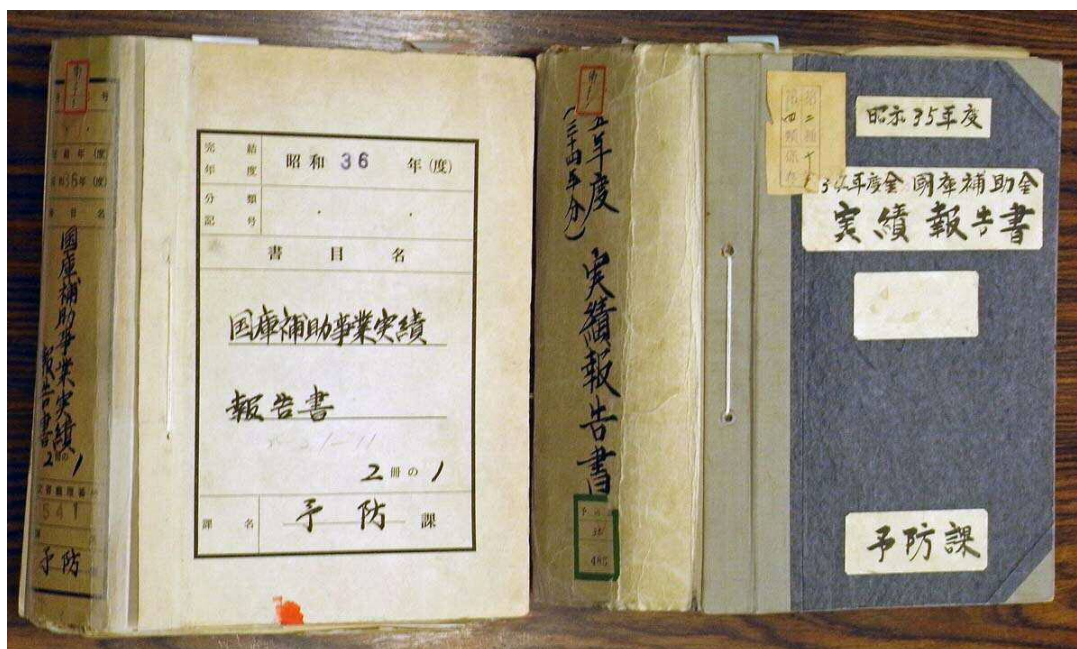 国庫補助事業実績
報告書
2冊の1
541
予防
完結
年度
昭和 36 年(度)
分類
記号
書目名
国庫補助事業実績
報告書
2冊の1
課名
予防課
五年度
(三十四年分)
実績報告書
第二種十
第四類保存
昭和35年度
34年度全国庫補助金
実績報告書
予防課